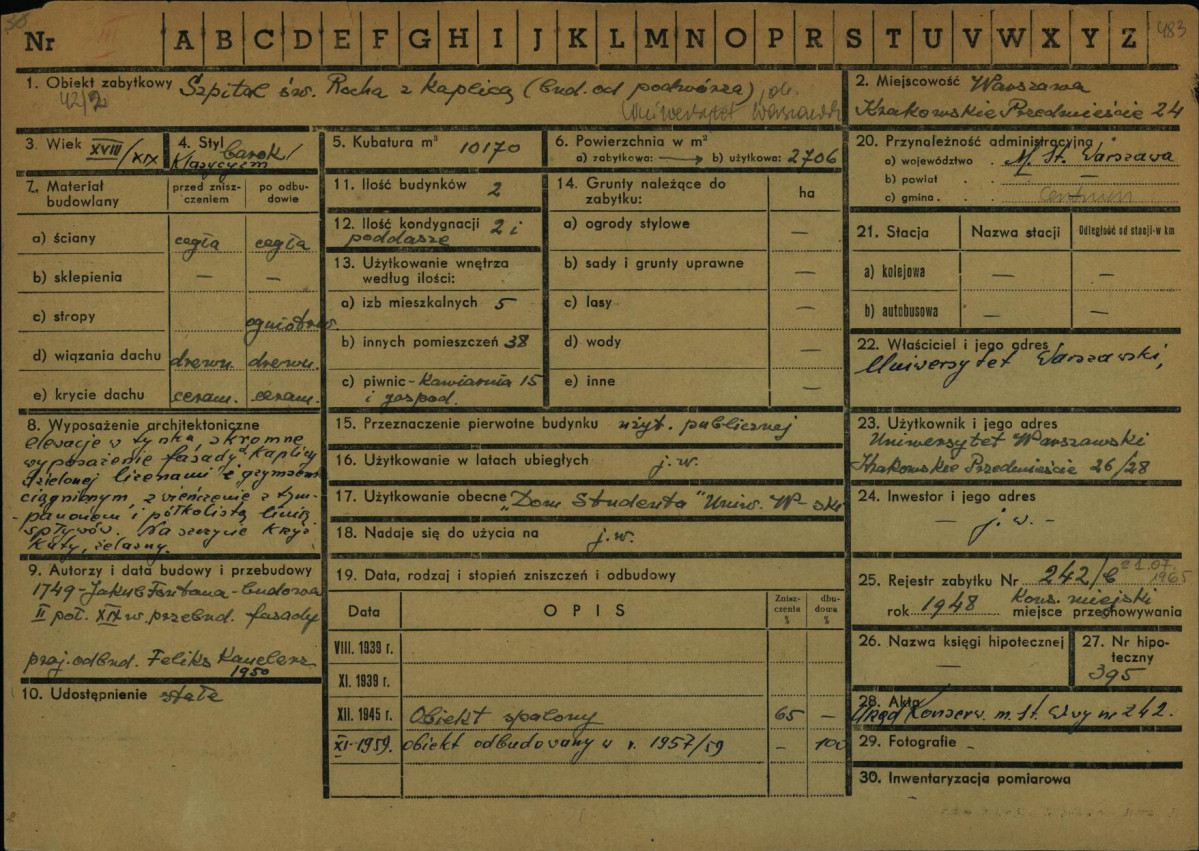 Nr III A B C D E F G H I J K L M N O P R S T U V W X Y Z 483
1. Obiekt zabytkowy Szpital św. Rocha z kaplicą (bud. od podwórza), ob.
42/2 Uniwersytet Warszawski
2. Miejscowość Warszawa
Krakowskie Przedmieście 24
3. Wiek XVIII/XIX
4. Styl barok/
Klasycyzm
5. Kubatura m³ 10170
6. Powierzchnia w m²
a) zabytkowa: → b) użytkowa: 2706
7. Materiał budowlany
przed znisz-
czeniem
po odbu-
dowie
a) ściany cegła cegła
b) sklepienia — —
c) stropy ogniotrw.
d) wiązania dachu drewn. drewn.
e) krycie dachu ceram. ceram.
8. Wyposażenie architektoniczne
elewacje w tynku, skromne
wyposażenie fasady kaplicy
dzielonej lizenami z gzymsem
ciągnionym, zwieńczenie z tym-
-panonem i półkolistą linią
spływów. Na szczycie krzyż
Kuty, żelazny.
9. Autorzy i data budowy i przebudowy
1749 - Jakub Fontana - budowa
II poł. XIX w. przebud. fasady
proj. odbud. Feliks Kanclerz
1950
10. Udostępnienie stałe
11. Ilość budynków 2
12. Ilość kondygnacji 2 i
poddasze
13. Użytkowanie wnętrza
według ilości:
a) izb mieszkalnych 5
b) innych pomieszczeń 38
c) piwnic - Kawiarnia 15
i gospod.
14. Grunty należące do
zabytku:
ha
a) ogrody stylowe —
b) sady i grunty uprawne —
c) lasy —
d) wody —
e) inne —
15. Przeznaczenie pierwotne budynku użyt. publicznej
16. Użytkowanie w latach ubiegłych j.w.
17. Użytkowanie obecne „Dom Studenta" Uniw. W-ski
18. Nadaje się do użycia na j.w.
19. Data, rodzaj i stopień zniszczeń i odbudowy
Data OPIS Znisz-
czenia
% dbu-
dowa
%
VIII. 1939 r.
XI. 1939 r.
XII. 1945 r. Obiekt spalony 65 —
XI-1959. obiekt odbudowany w r. 1957/59 - 100
20. Przynależność administracyjna
a) województwo . M. St. Warszawa
b) powiat . . — —
c) gmina . . . Centrum
21. Stacja Nazwa stacji Odległość od stacji w km
a) kolejowa — —
b) autobusowa — —
22. Właściciel i jego adres
Uniwersytet Warszawski,
23. Użytkownik i jego adres
Uniwersytet Warszawski
Krakowskie Przedmieście 26/28
24. Inwestor i jego adres
— j.w. -
25. Rejestr zabytku Nr 242/6 z 1.07.
1965
rok 1948 Kons. miejski
miejsce przechowywania
26. Nazwa księgi hipotecznej
—
27. Nr hipo-
teczny
395
28. Akta
Urząd Konserw. m. St. W-wy nr 242.
29. Fotografie -
30. Inwentaryzacja pomiarowa